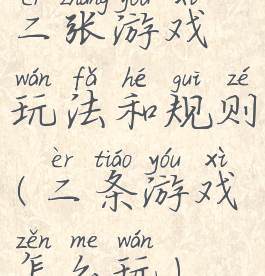 èr zhāng yóu xì
二张游戏
wán fǎ hé guī zé
玩法和规则
èr tiáo yóu xì
(二条游戏
zěn me wán
怎么玩)